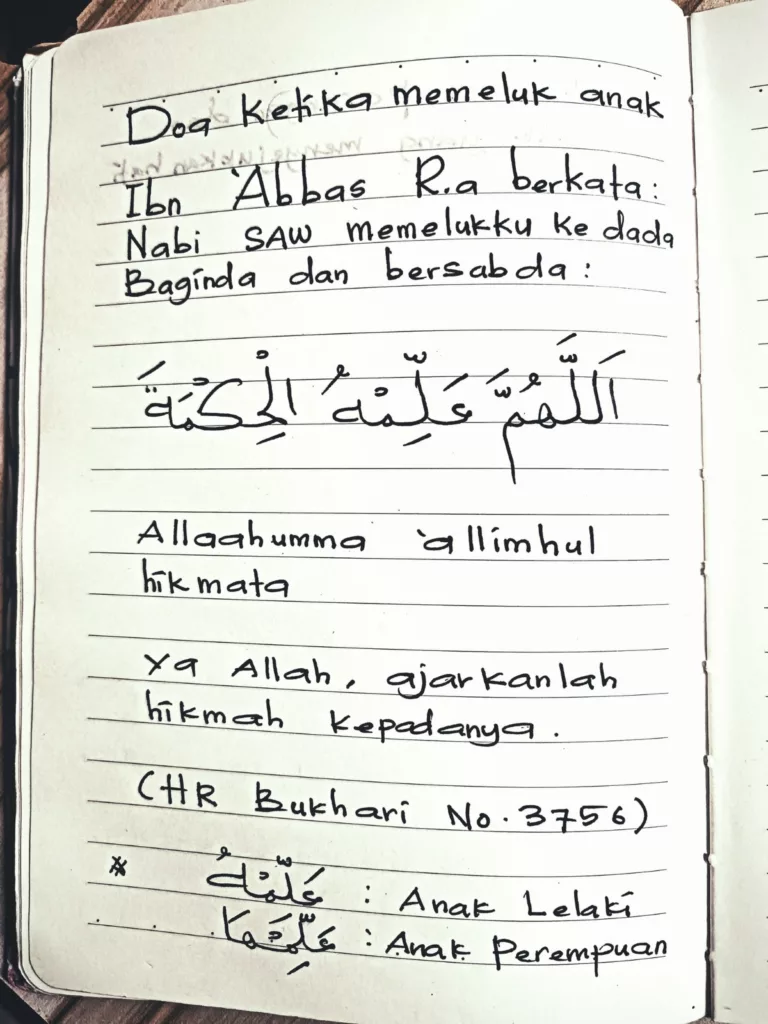 Doa Ketika memeluk anak
Ibn 'Abbas R.a berkata:
Nabi SAW memelukku ke dada
Baginda dan bersabda:
اَللَّهُمَّ عَلِّمْهُ الْحِكْمَةَ
Allaahumma 'allimhul
hikmata
Ya Allah, ajarkanlah
hikmah kepadanya.
(HR Bukhari No. 3756)
* عَلِّمْهُ : Anak Lelaki
عَلِّمْهَا : Anak Perempuan